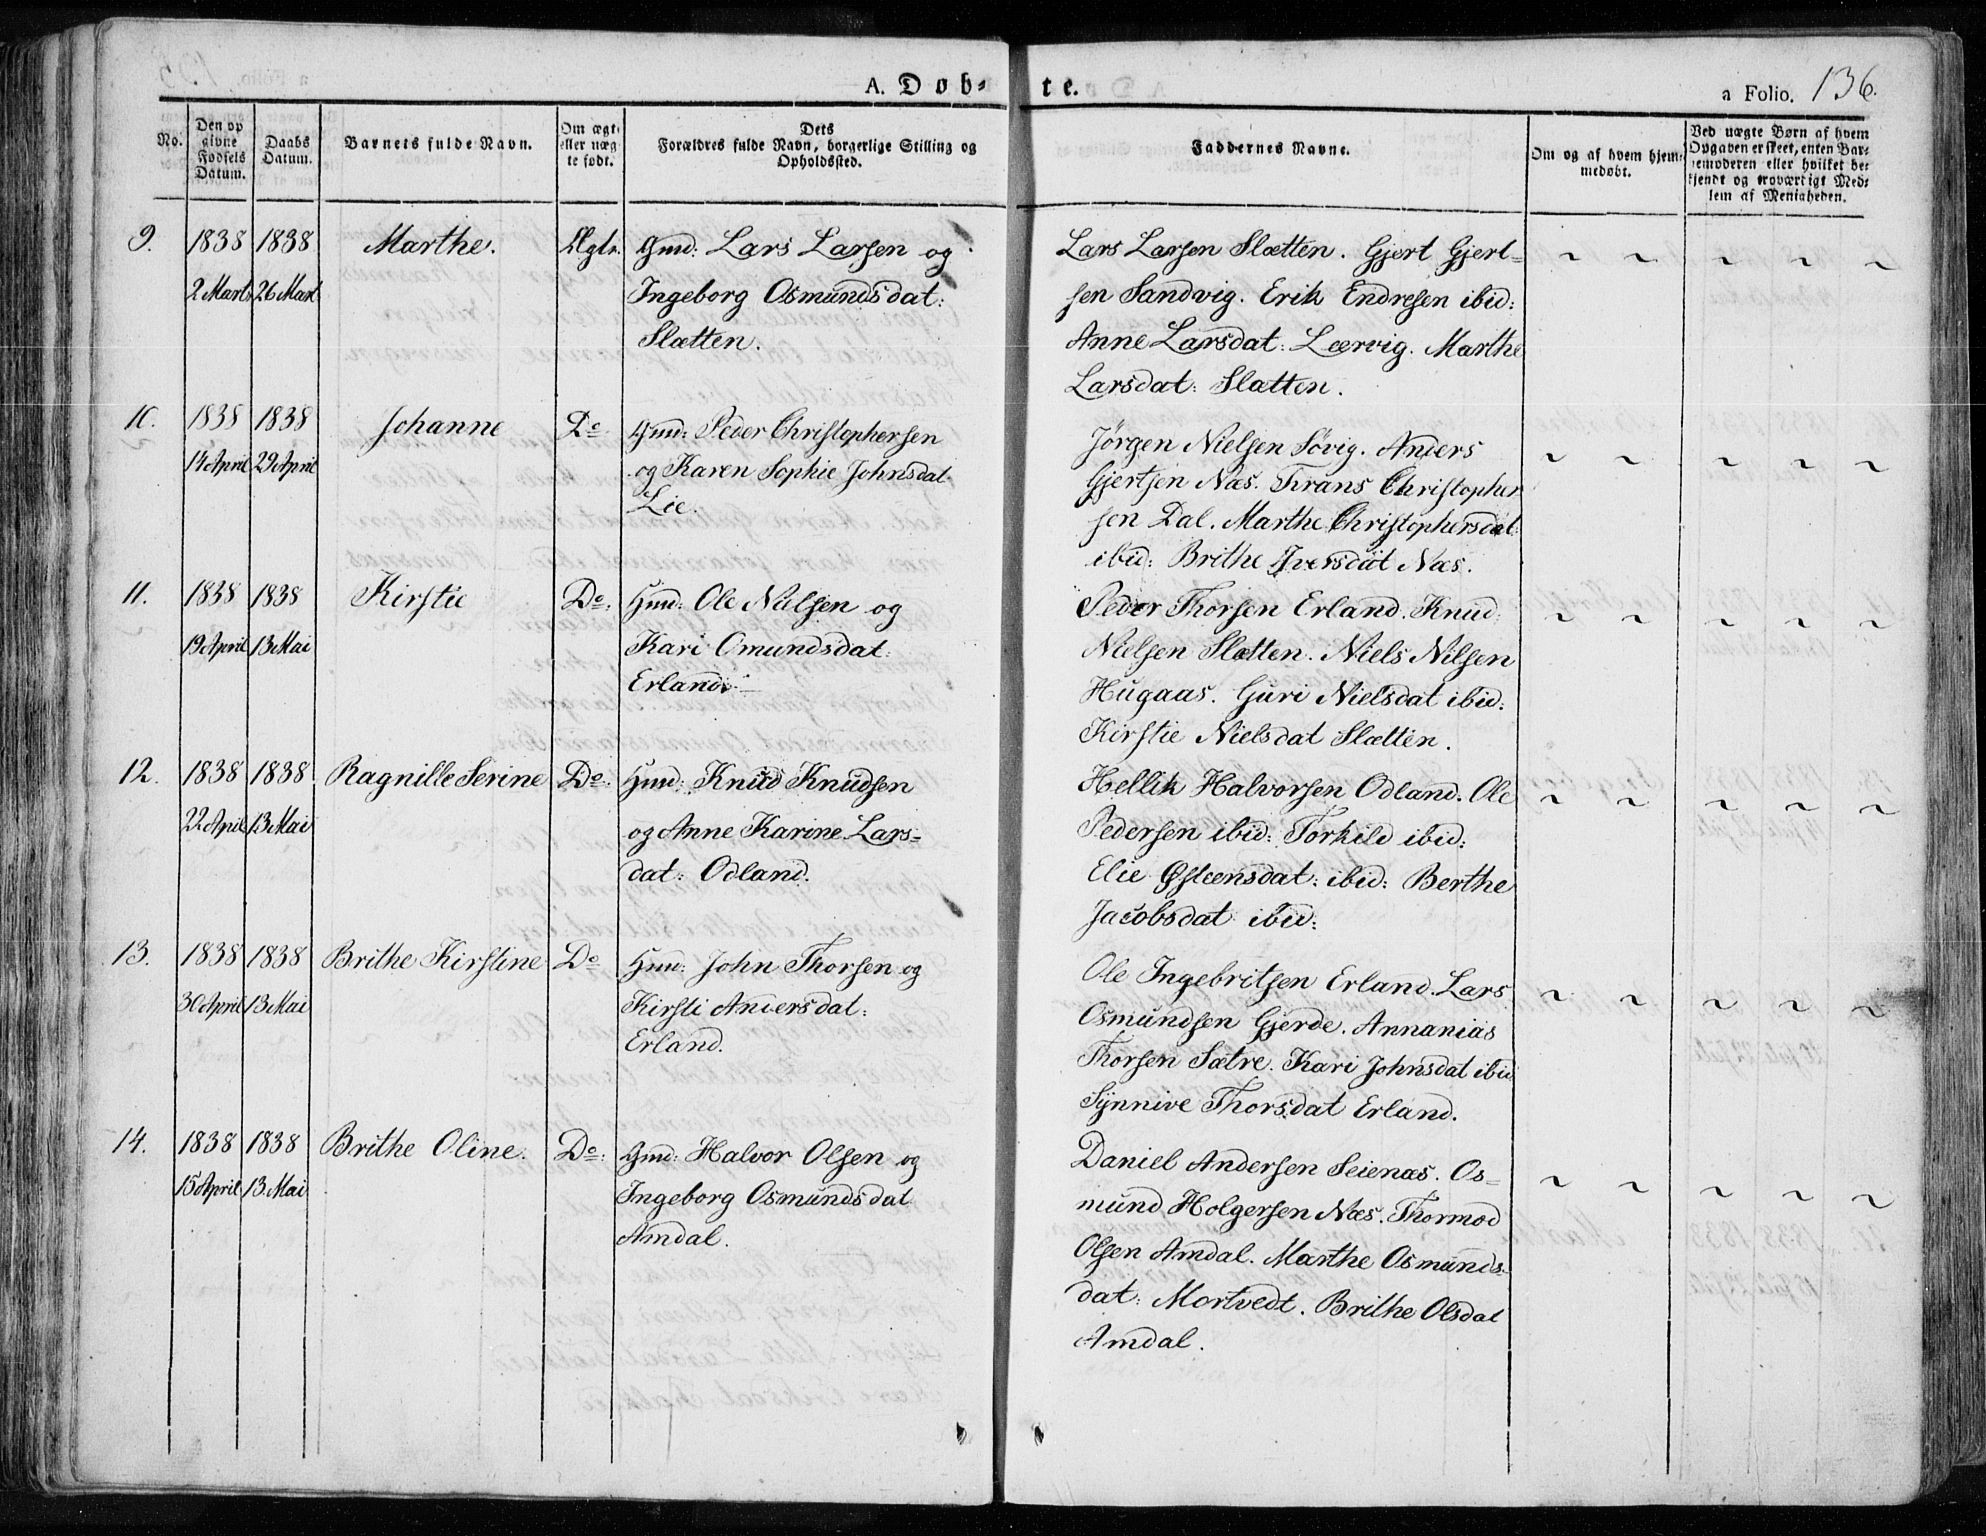 A. Døb-
te.
a Folio. 136.
No.
Den op
givne
Fødsels
Datum.
Daabs
Datum.
Barnets fulde Navn.
Om ægte
eller uæg
te født.
Dets
Forældres fulde Navn, borgerlige Stilling og
Opholdssted.
Faddernes Navne.
Om og af hvem hjem-
medøbt.
Ved uægte Børn af hvem
Opgaven er skeet, enten Bar-
nemoderen eller hvilket be-
kjendt og troværdigt Med-
lem af Menigheden.
9. 1838 1838 Marthe. Ægte. Gmd: Lars Larsen og
2 Marts 26 Mart Ingeborg Osmundsdat:
Slætten.
Lars Larsen Slætten. Gjert Gjert-
sen Sandvig. Erik Endresen ibid:
Anne Larsdat: Leervig. Marthe
Larsdat: Slætten.
10. 1838 1838 Johanne Do Gmd: Peder Christophersen
14 April 29 April og Karen Sophie Johnsdat
Lie.
Jørgen Nielsen Søvig. Anders
Gjertsen Næs. Frans Christopher
sen Dal. Marthe Christophersdat:
ibid: Brithe Iversdat Næs.
11. 1838 1838 Kirstie Do: Hmd: Ole Nielsen og
19 April 13 Mai Kari Omundsdat:
Erland.
Peder Thorsen Erland. Knud
Nielsen Slætten. Niels Nilsen
Hugaas. Guri Nielsdat ibid:
Kirstie Nielsdat Slætten.
12. 1838 1838 Ragnille Serine Do: Hmd: Knud Knudsen
22 April 13 Mai og Anne Karine Lars-
dat: Odland.
Hellik Halvorsen Odland. Ole
Pedersen ibid: Torkild ibid:
Elie Østeensdat: ibid: Berthe
Jacobsdat ibid:
13. 1838 1838 Brithe Kirstine Do Hmd: John Thorsen og
30 April 13 Mai Kirsti Andersdat:
Erland.
Ole Ingebritsen Erland. Lars
Osmundsen Gjerde. Annanias
Thorsen Sætre. Kari Johnsdat ibid
Synnive Thorsdat Erland.
14. 1838 1838 Brithe Oline. Do: Gmd: Halvor Olsen og
15 April 13. Mai Ingeborg Osmundsdat
Amdal.
Daniel Andersen Seienæs. Os-
mund Holgersen Næs. Thormod
Olsen Amdal. Marthe Osmunds-
dat: Mortvedt. Brithe Olsdat
Amdal.